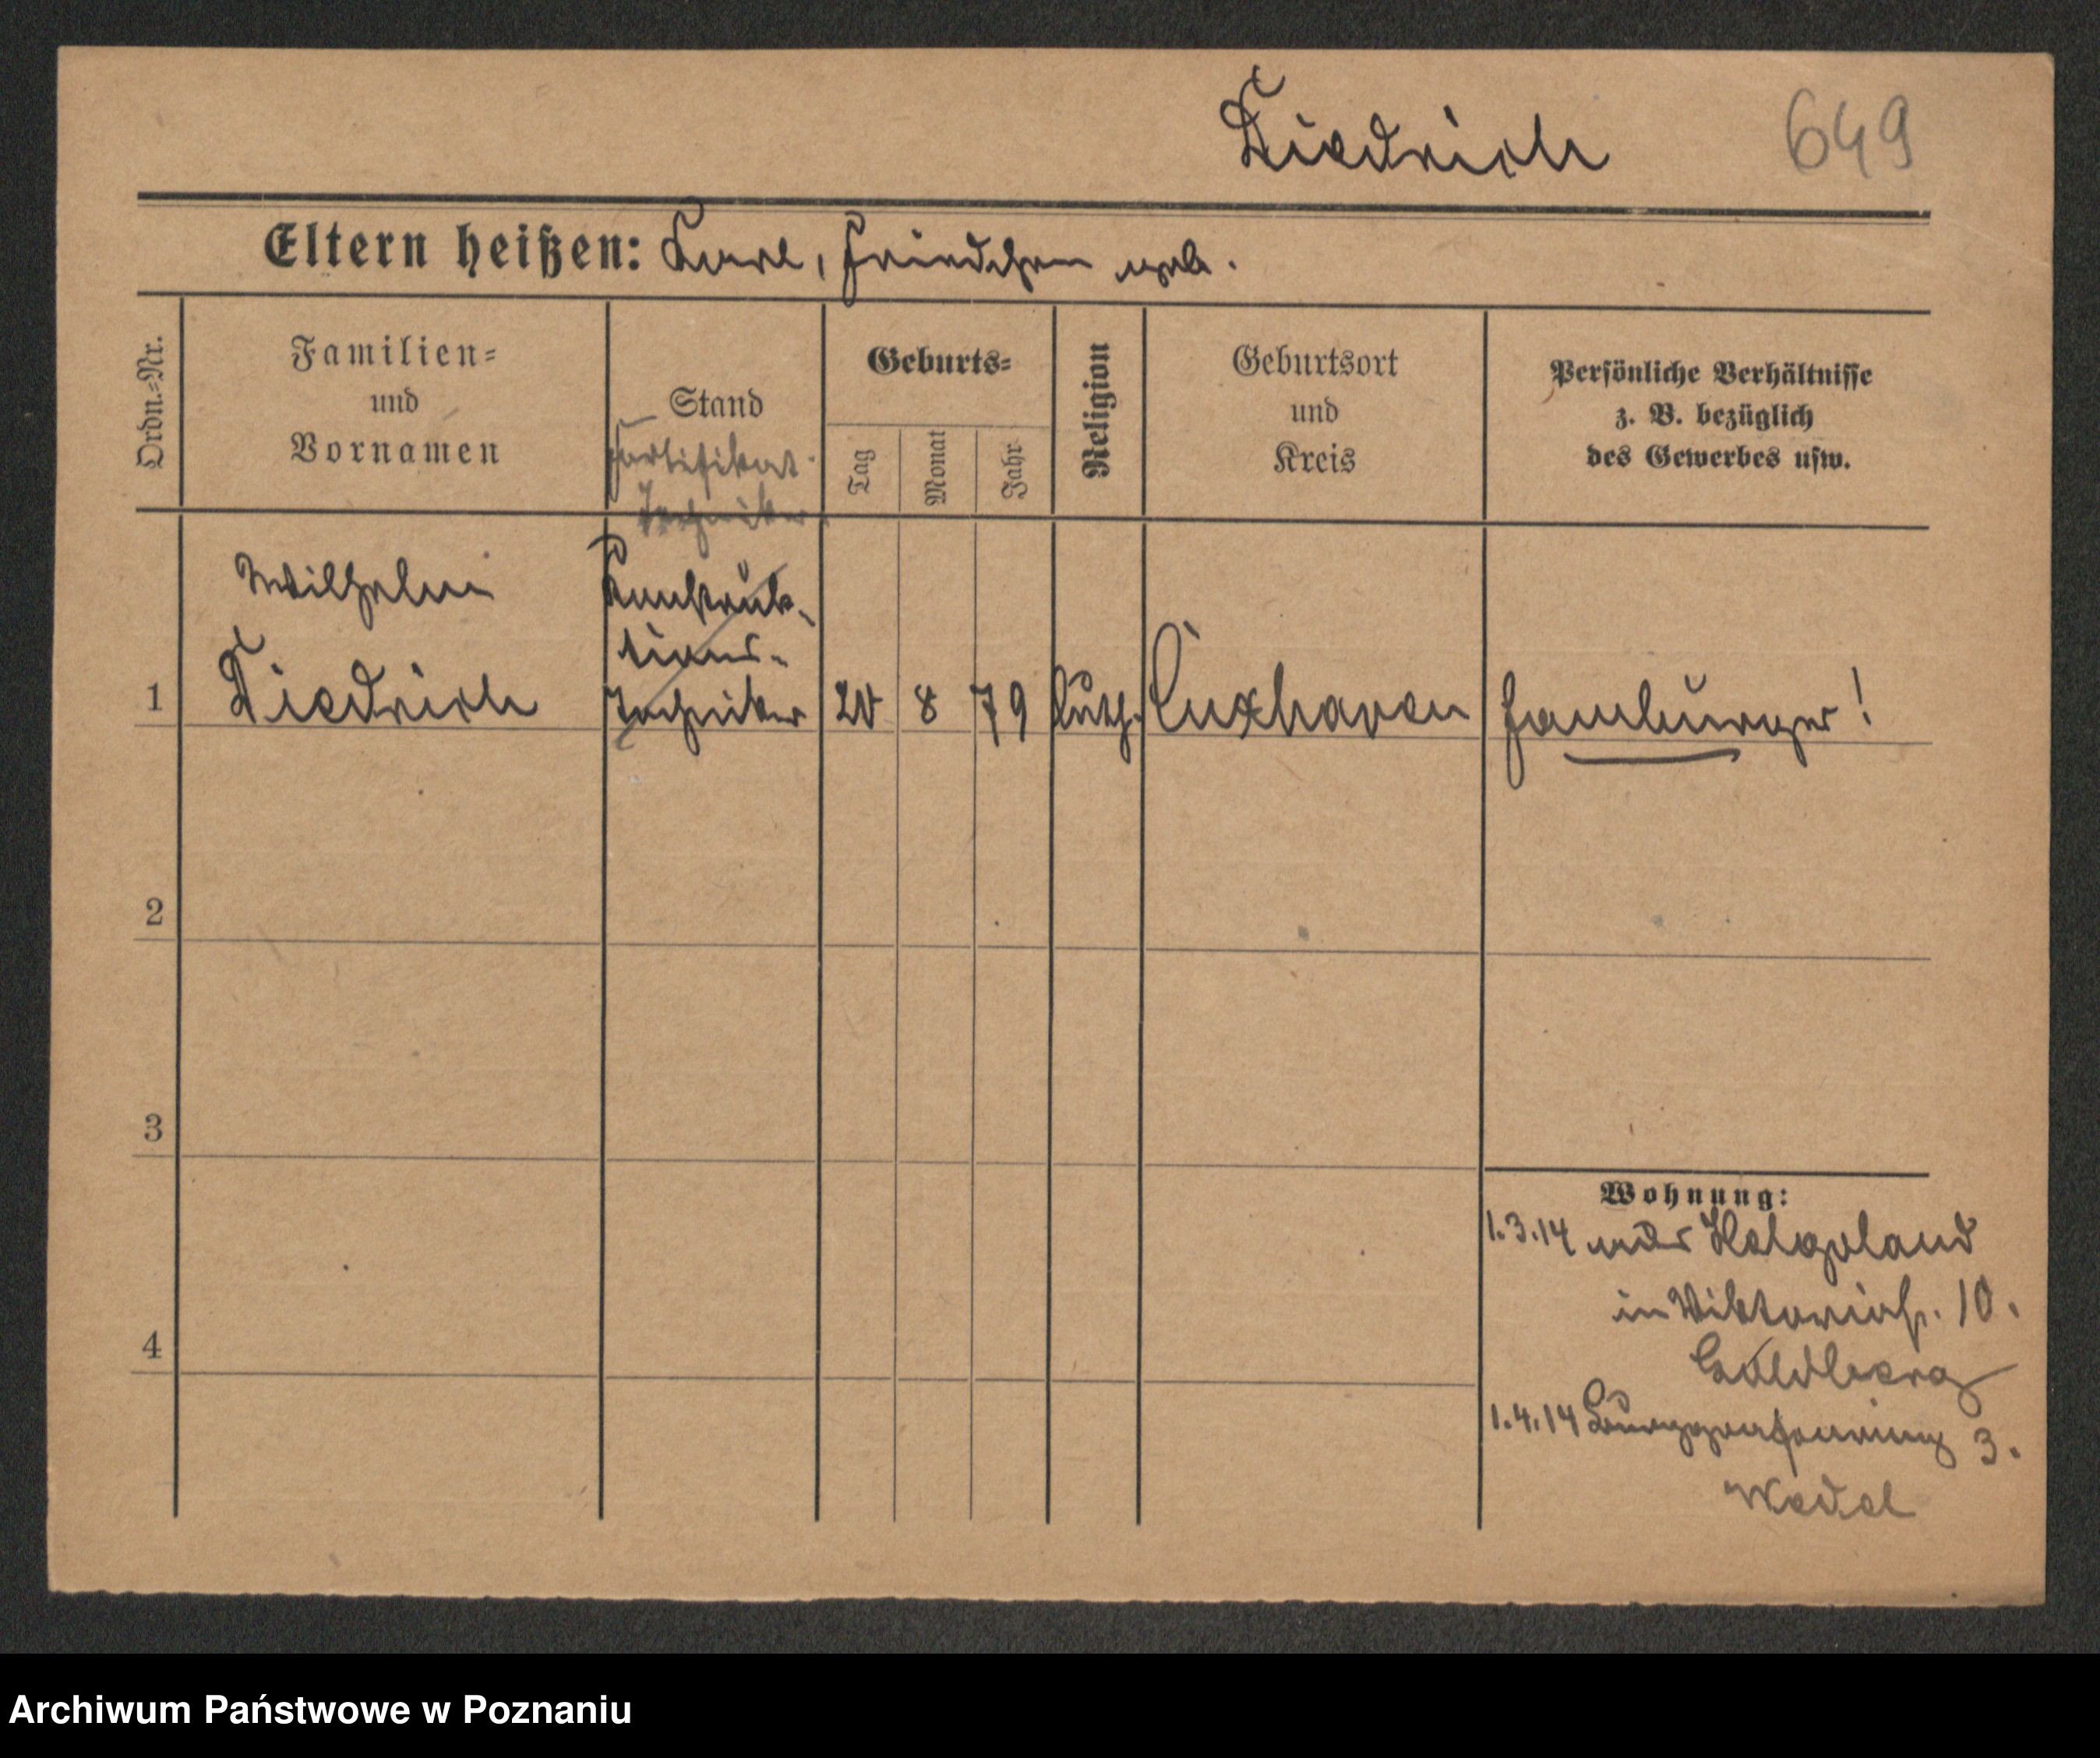 Diedrich 649
Eltern heißen: Karl, Friedchen geb.
Ordn.=Nr.
Familien=
und
Vornamen
Stand
Geburts=
Tag
Monat
Jahr
Religion
Geburtsort
und
Kreis
Persönliche Verhältnisse
z. B. bezüglich
des Gewerbes usw.
Fortifikat.
Techniker
Wilhelm
Konstruk-
tions-
1 Diedrich Techniker 20 8 79 luth. Cuxhaven Hamburger!
2
3
4
Wohnung:
1.3.14 Helgoland
in Viktoriastr. 10.
Goldberg
1.4.14 Burggrafenring 3.
Wedel
Archiwum Państwowe w Poznaniu